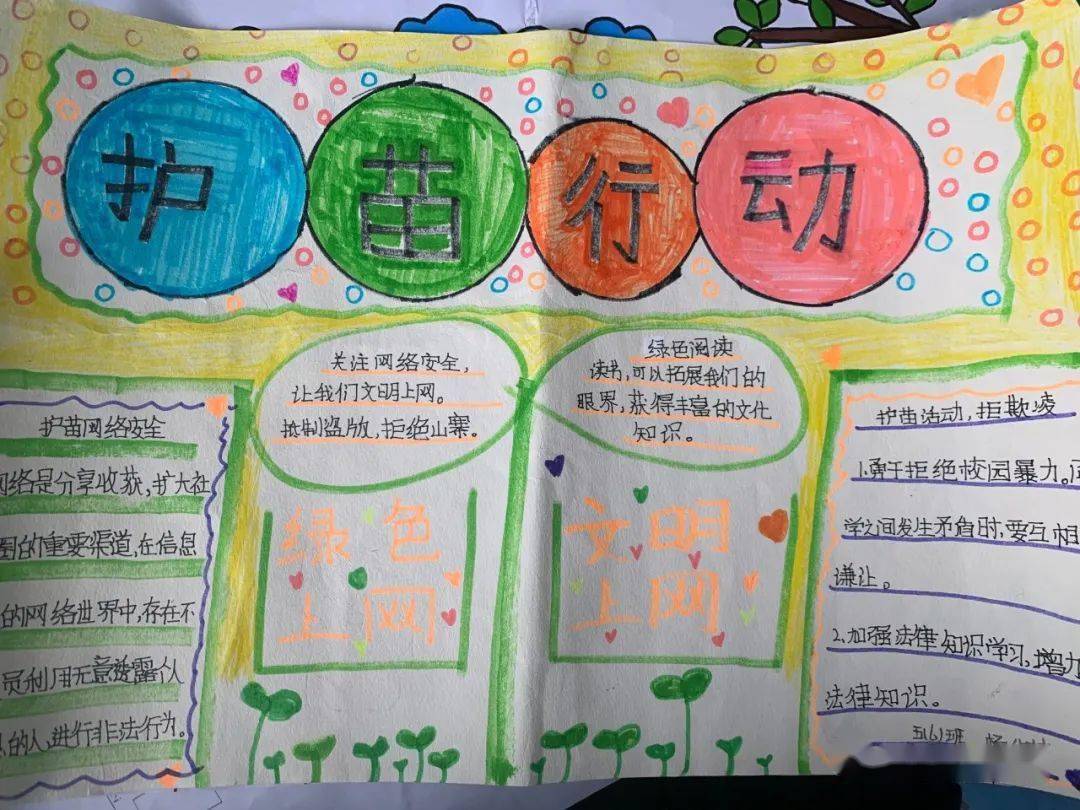 护苗行动
护苗网络安全
网络是分享收获,扩大社
圈的重要渠道,在信息
的网络世界中,存在不
员利用无意透露个人
的人,进行非法行为。
关注网络安全,
让我们文明上网。
抵制盗版,拒绝山寨。
绿色阅读
读书,可以拓展我们的
眼界,获得丰富的文化
知识。
绿色
上网
文明
上网
护苗活动,拒欺凌
1.勇于拒绝校园暴力。同
学之间发生矛盾时,要互相
谦让。
2.加强法律知识学习,增
法律知识。
班